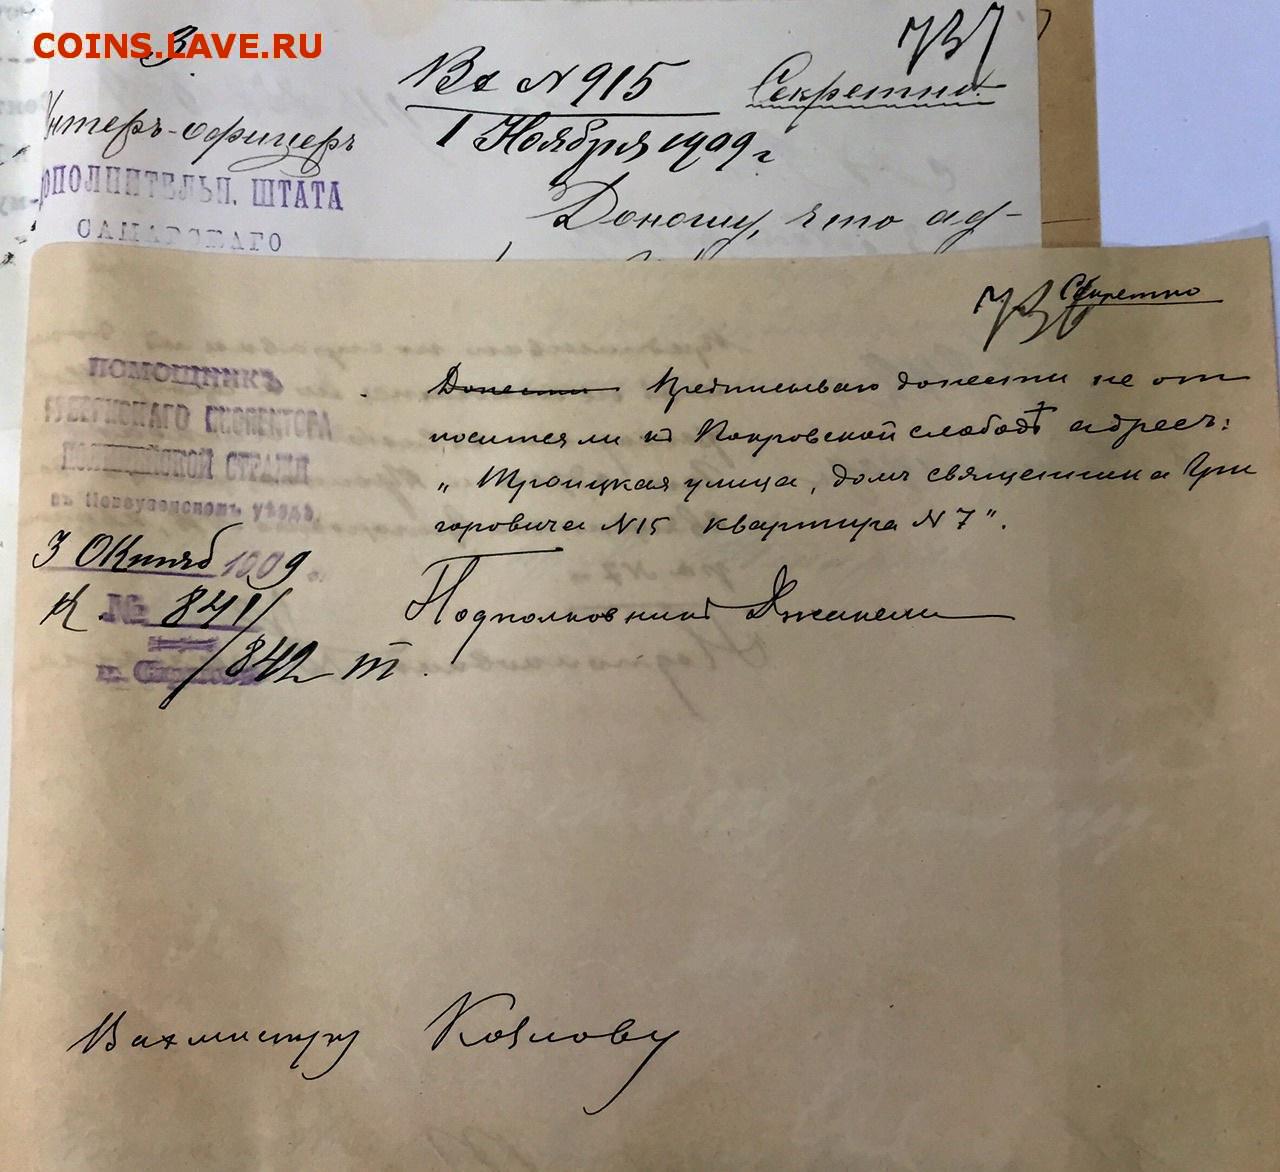 COINS.LAVE.RU
3.
Унтеръ-офицеръ
ДОПОЛНИТЕЛЬН. ШТАТА
САМАРСКАГО
Вх N 915
1 Ноября 1909 г
Секретно.
Доношу, что ад-
Секретно
ПОМОЩНИКЪ
ГУБЕРНСКАГО ИНСПЕКТОРА
ПОЛИЦЕЙСКОЙ СТРАЖИ
въ Новоузенскомъ уѣздѣ.
3 Октяб 1909 г.
№ 841/
/842
Донести Предписываю донести не от
носится ли къ Покровской слободѣ адресъ:
„Троицкая улица, домъ священника Гри
горовича N15 квартира N 7".
Подполковникъ
Вахмистру Козлову